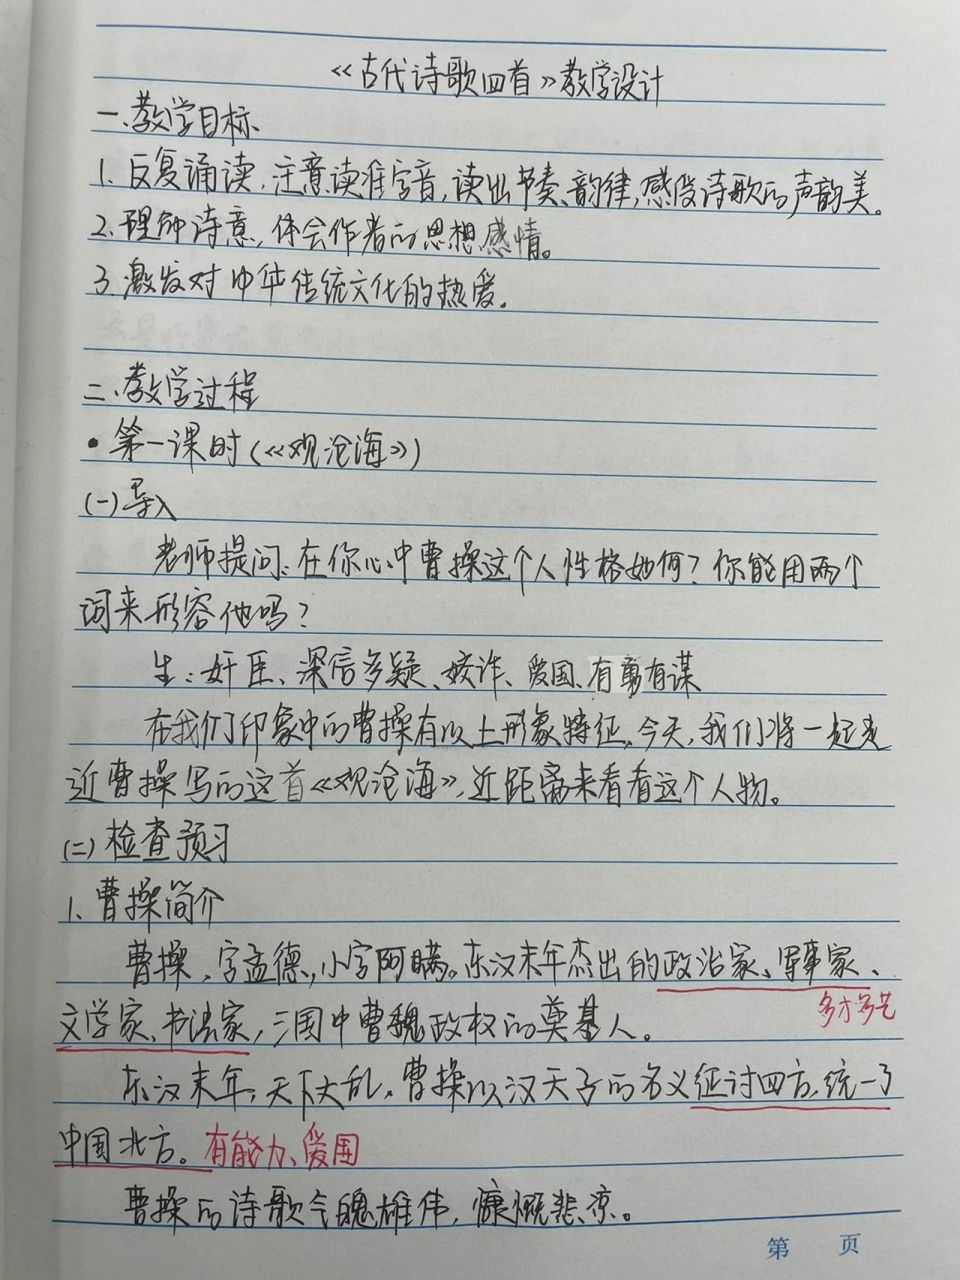 《古代诗歌四首》教学设计
一、教学目标
1. 反复诵读，注意读准字音，读出节奏、韵律，感受诗歌的声韵美。
2. 理解诗意，体会作者的思想感情。
3. 激发对中华传统文化的热爱。
二、教学过程
• 第一课时（《观沧海》）
(一) 导入
老师提问：在你心中曹操这个人性格如何？你能用两个
词来形容他吗？
生：奸臣、深信多疑、狡诈、爱国、有勇有谋
在我们印象中的曹操有以上形象特征，今天，我们将一起走
近曹操写的这首《观沧海》，近距离来看看这个人物。
(二) 检查预习
1、曹操简介
曹操，字孟德，小字阿瞒。东汉末年杰出的政治家、军事家、
多才多艺
文学家、书法家，三国中曹魏政权的奠基人。
东汉末年，天下大乱，曹操以汉天子的名义征讨四方，统一了
中国北方。有能力、爱国
曹操的诗歌气魄雄伟，慷慨悲凉。
第 页